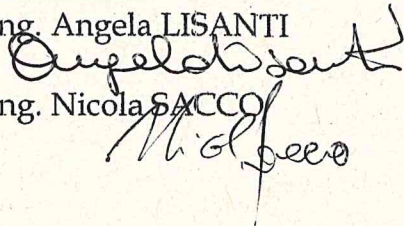 ng. Angela LISANTI
Angela Lisanti
ng. Nicola SACCO
Nicola Sacco